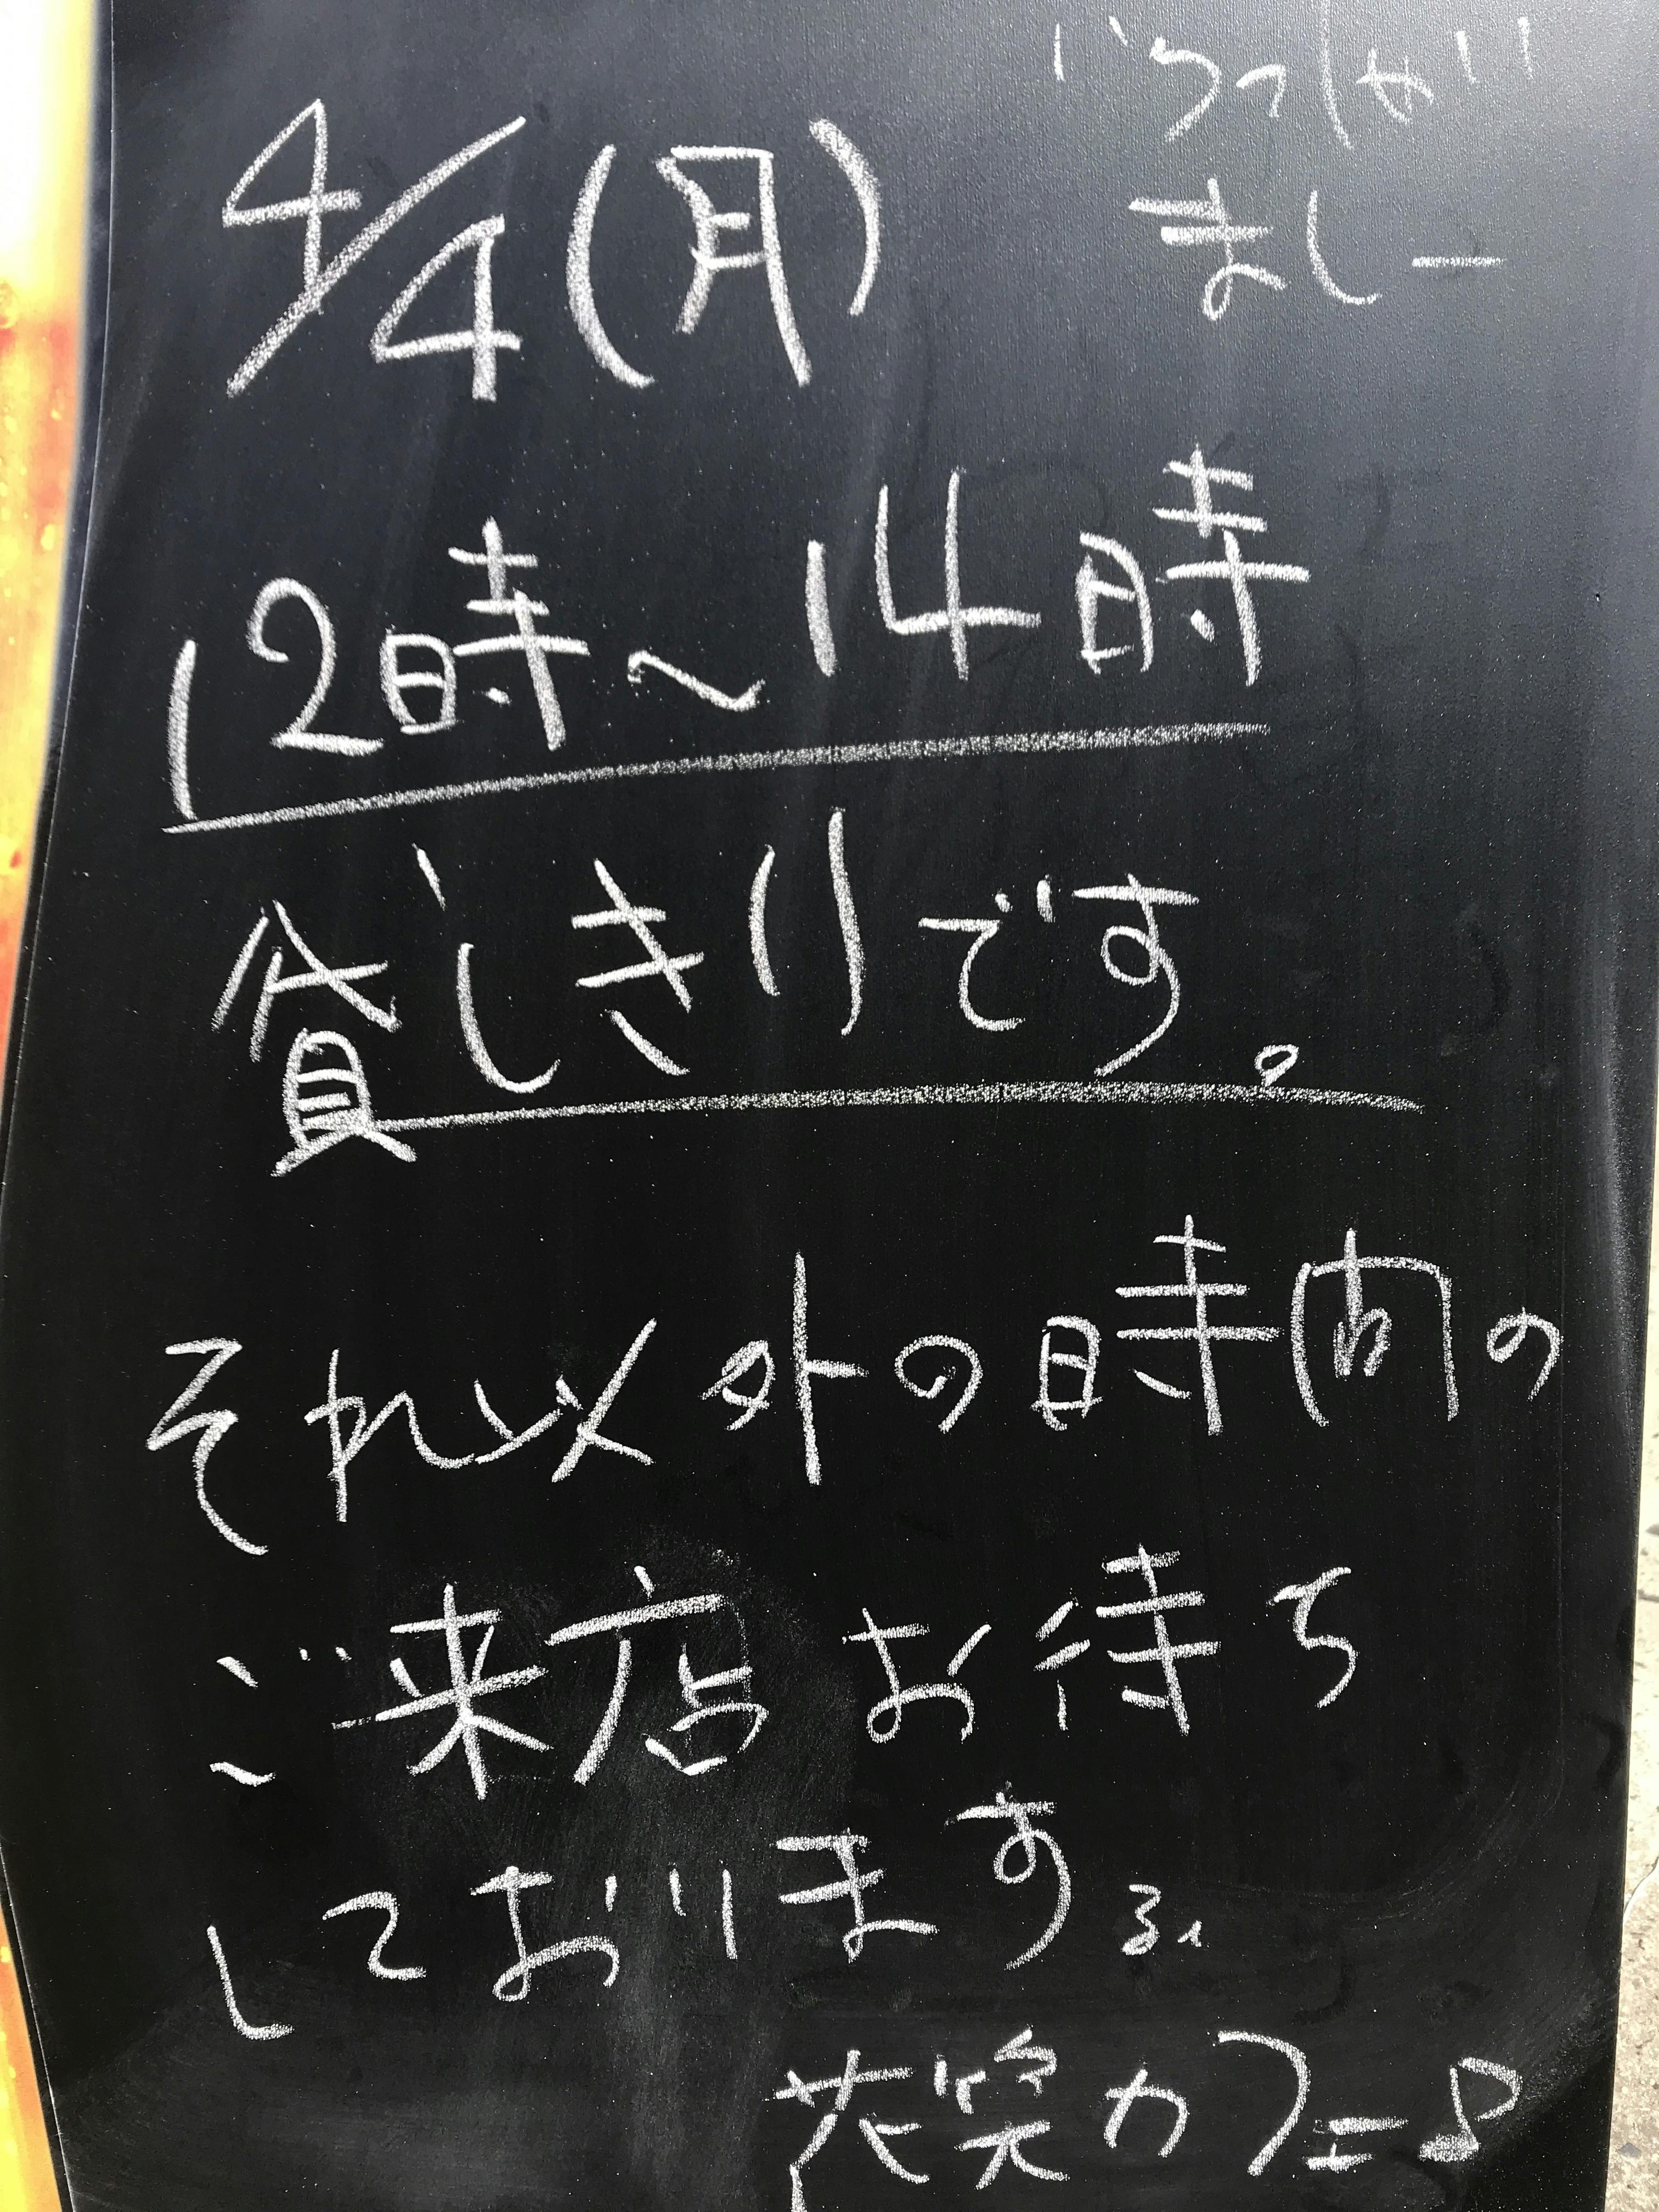 いらっしゃい
ましー
4/4(月)
12時～14時
貸しきりです。
それ以外の時間の
ご来店お待ち
しております
花笑カフェ♪